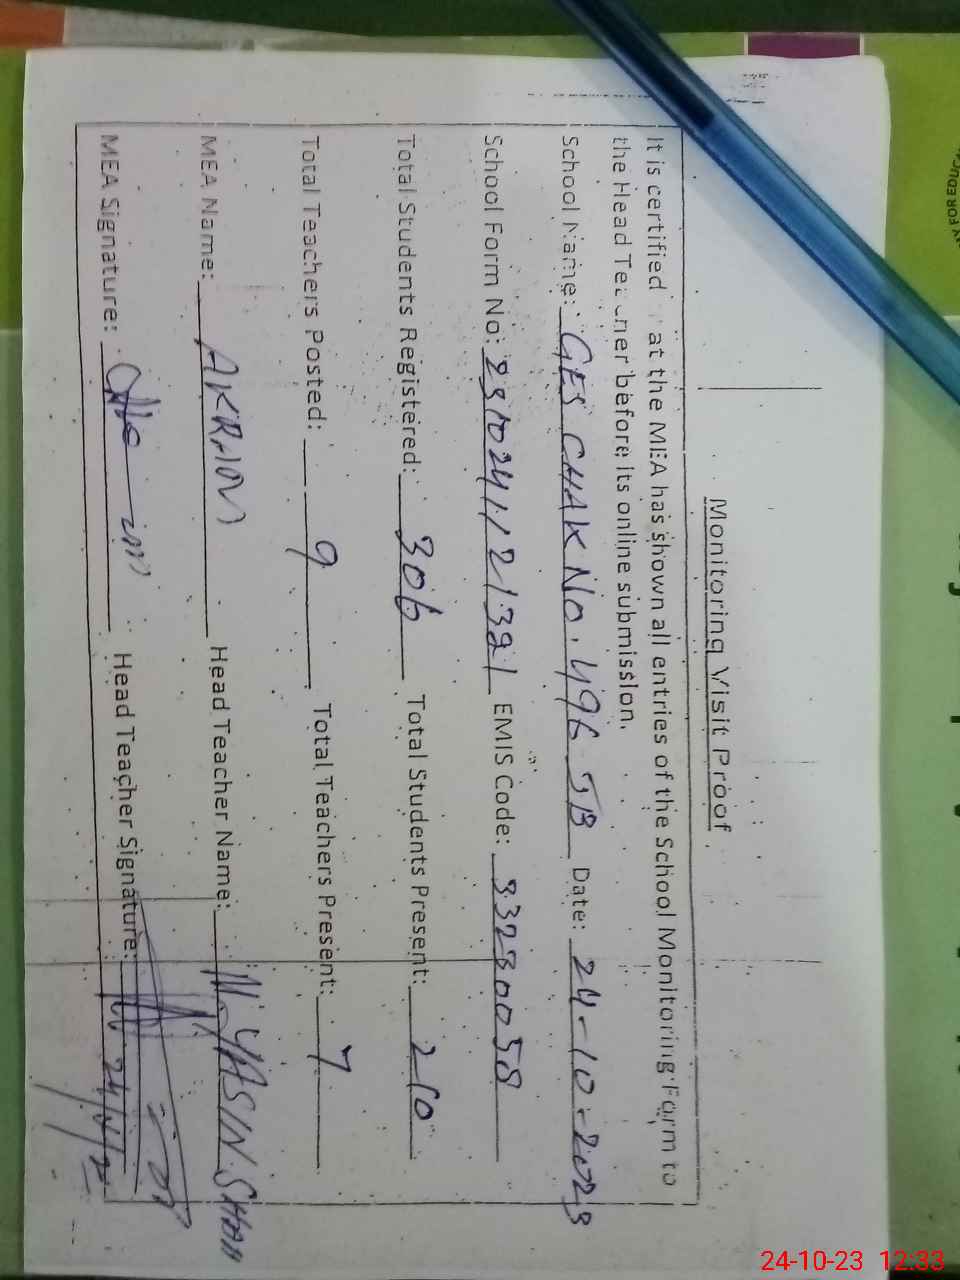 Monitoring Visit Proof
It is certified at the MEA has shown all entries of the School Monitoring Form to
the Head Teacher before its online submission.
School Name: GES CHAK No. 496 JB Date: 24-10-2023
School Form No: EMIS Code: 33230058
Total Students Registered: 306 Total Students Present: 210
Total Teachers Posted: 9 Total Teachers Present: 7
MEA Name: AKRAM Head Teacher Name: M. YASIN SHAH
MEA Signature: Head Teacher Signature:
24-10-23 12:33